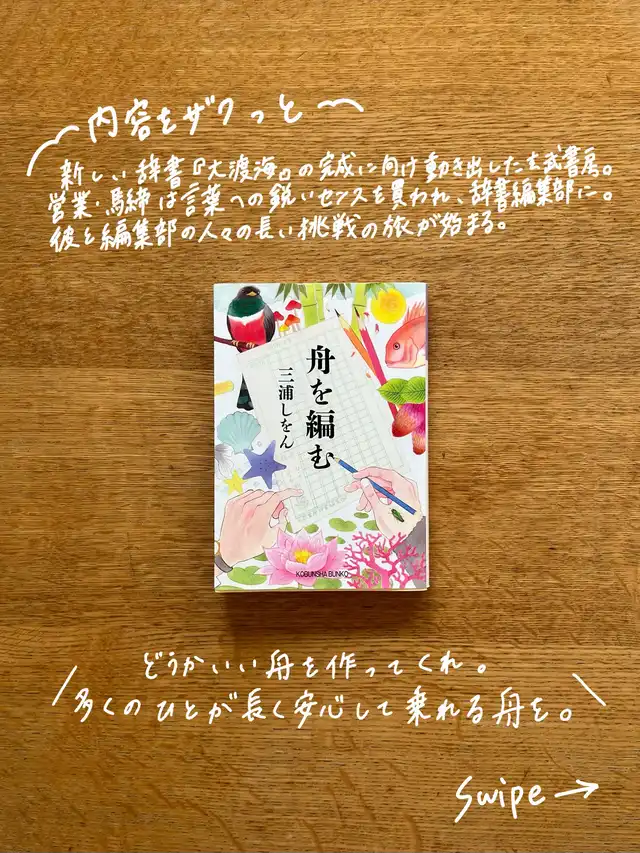 内容をザクっと
新しい辞書『大渡海』の完成に向け動き出した玄武書房。
営業・馬締は言葉への鋭いセンスを買われ、辞書編集部に。
彼と編集部の人々の長い挑戦の旅が始まる。
舟を編む
三浦しをん
KOBUNSHA BUNKO
どうかいい舟を作ってくれ。
多くのひとが長く安心して乗れる舟を。
Swipe→